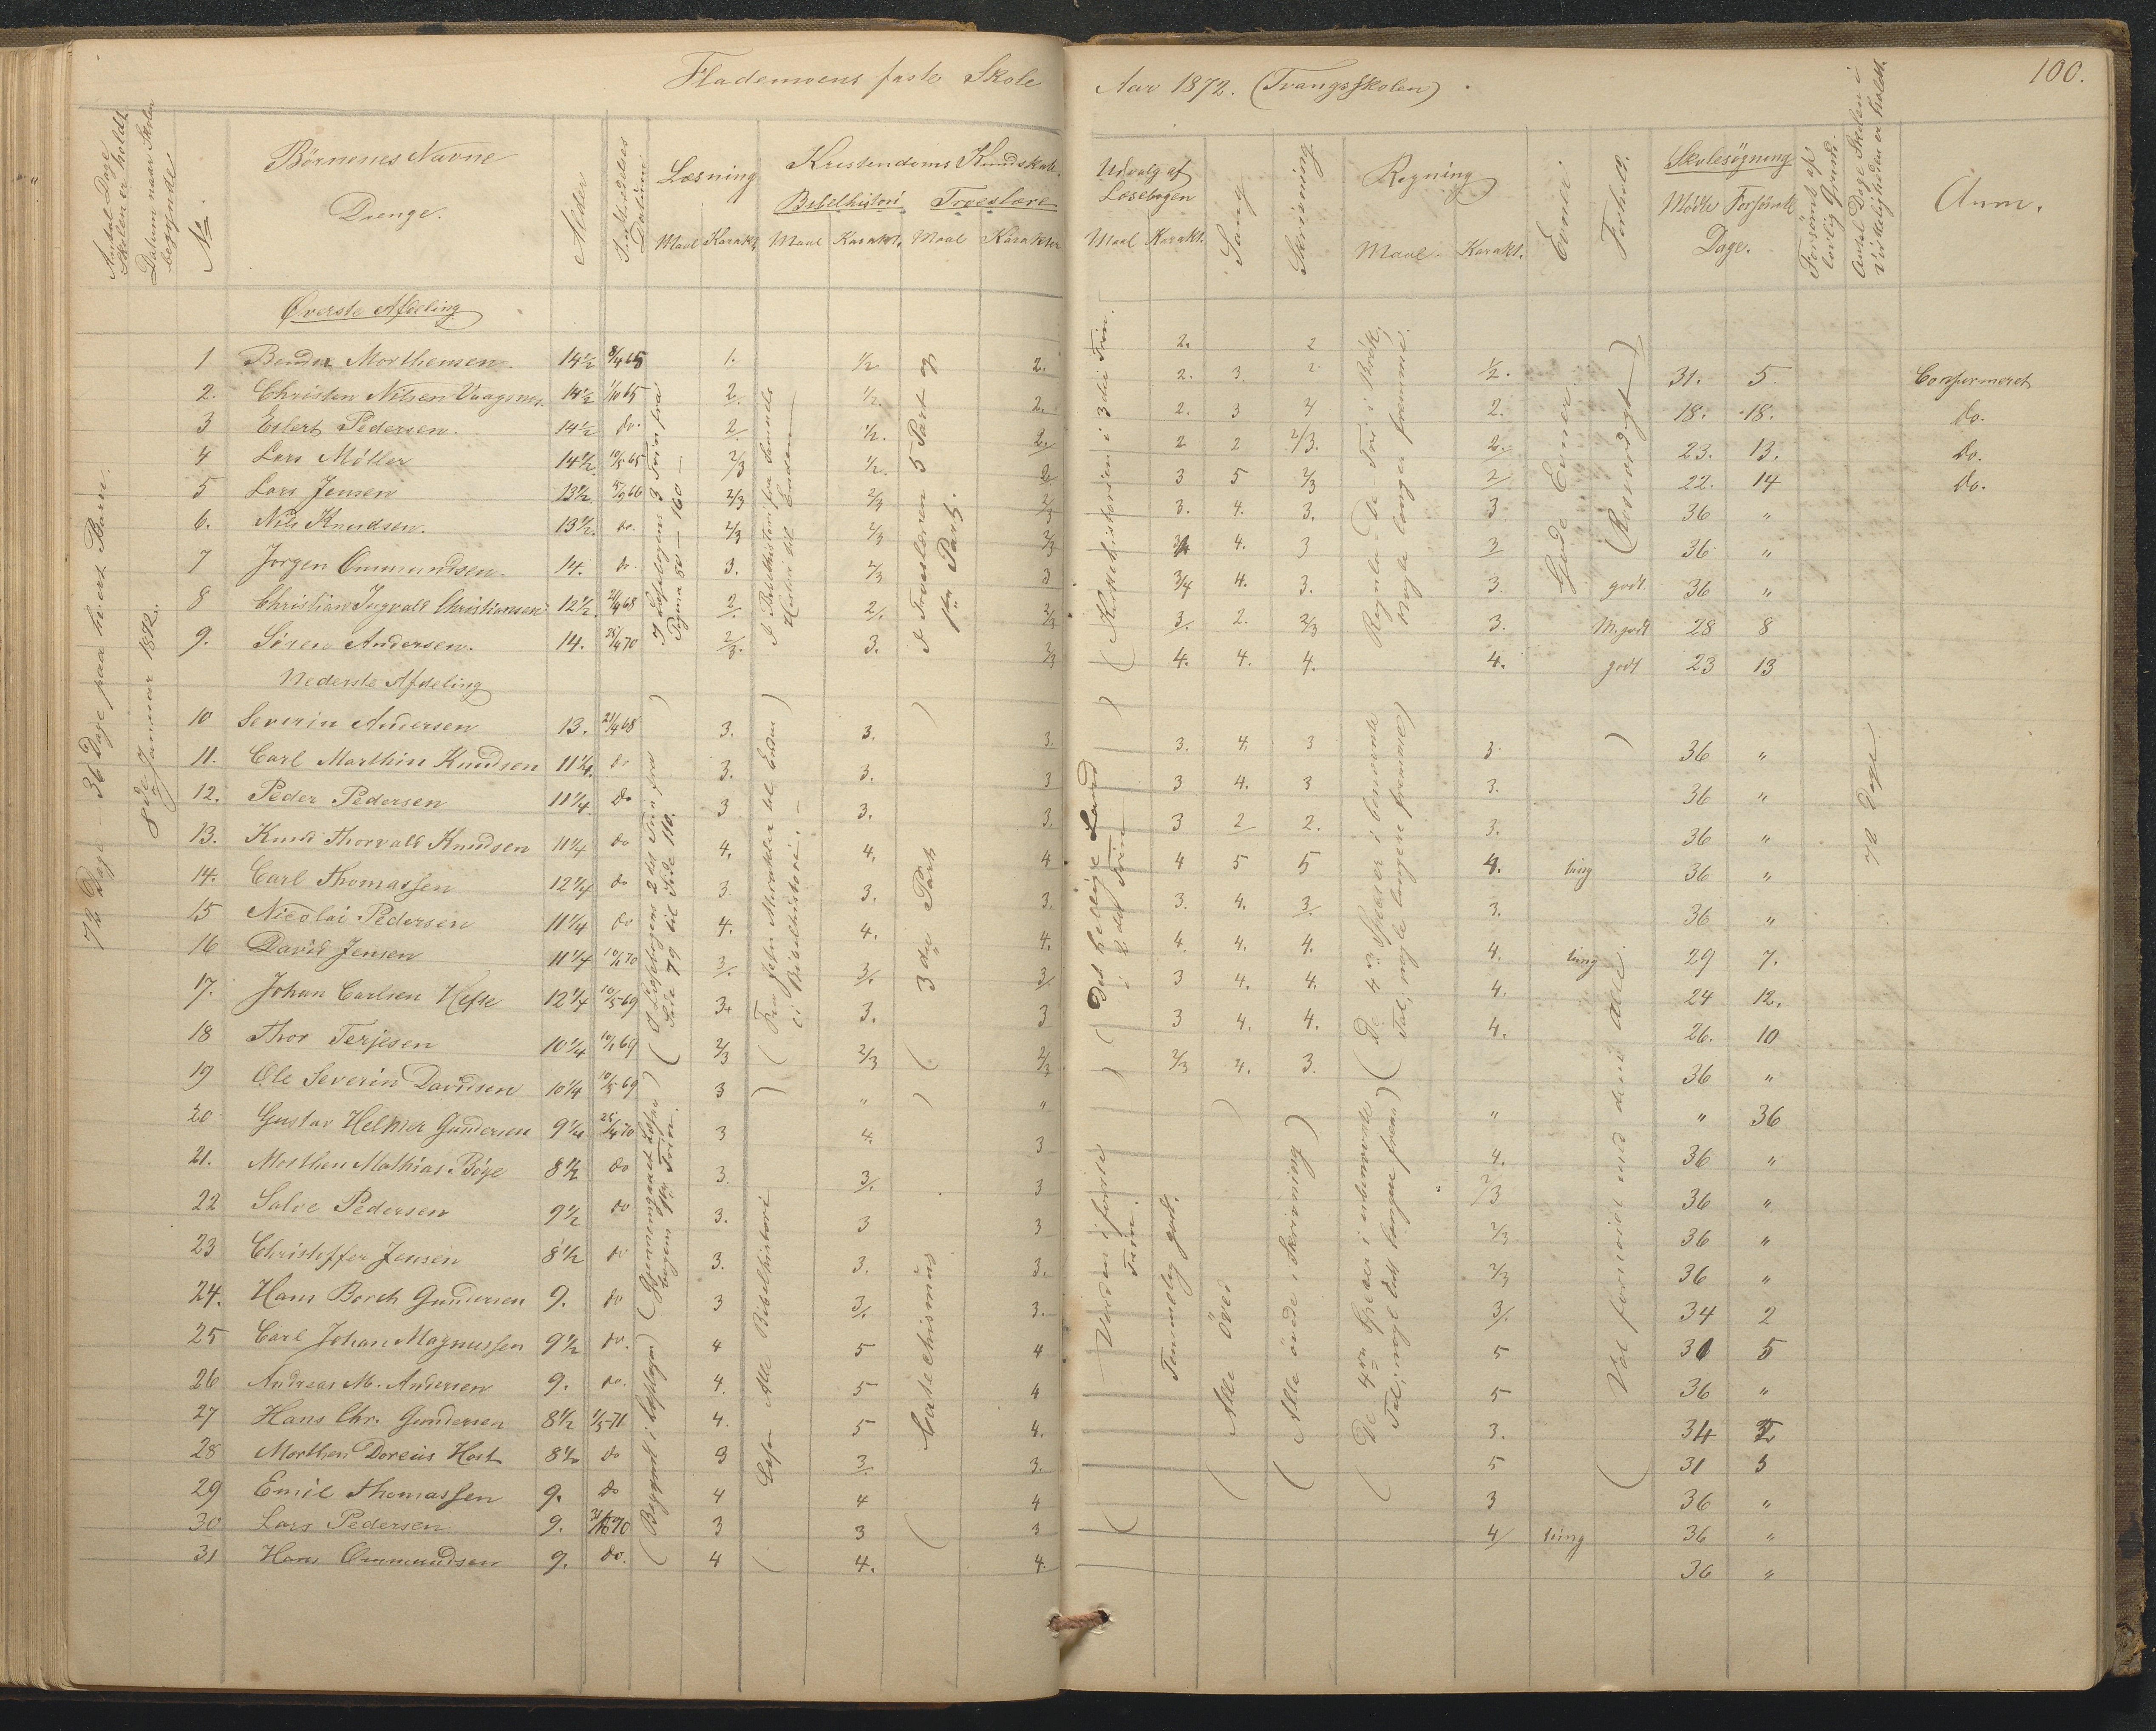 Flademoens faste Skole Aar 1872. (Trangsskolen). 100.
Antal Dage Skolen er holdt
Datum naar Skolen begynde
No. Börnenes Navne Drenge. Alder Indtrædelses Datum Læsning Maal Karakt. Kristendoms Kundskab. Bibelhistori Maal Karakt. Troeslære Maal Karakter
Udvalg af Læsebogen Maal Karakt. Sang Skrivning Regning Maal. Karakt. Evner Forhold. Skolesögning Mödte Forsömte Dage. Forsömt af lovlig Grund. Antal Dage Skolen i Virkeligheden er holdt. Anm.
72 Dage — 36 Dage paa hvert Barn.
8de Januar 1872.
Øverste Afdeling
1 Morthensen. 14½ 8/4 65 1. ½ 2. 2. 2 ½. 31. 5 Confirmeret
2. Christen Nilsen 14½ 1/10 65 2. ½. 2. 2. 3. 2 2. 18. 18. do.
3 Eilert Pedersen. 14½ do. 2/. ½. 2/. 2. 3 2 2/. 23. 13. do.
4 Lars Möller 14½. 10/5 65 2/3 ½. 2/ 2 2 2/3. 2/ 22. 14 do.
5 Lars Jensen 13½. 5/9 66 2/3 2/3 2/3 3 5 2/3 3 36 "
6. Nils Knudsen. 13½. do. 2/3 2/3 2/3 3. 4. 3. 3/ 36 "
7 Jörgen Ommundsen. 14. do. 3. 2/3 3 4. 3 3. 36 "
8 Christian Ingvald Christiansen 12½. 21/4 68 2/. 2/. 2/3 3/4 4. 3. 3. godt 36 "
9. Sören Andersen. 14. 25/4 70 2/3. 3. 2/3 3/. 2. 2/3 3. M. godt 28 8
4. 4. 4. 4. godt 23 13
I Læsebogens 3 Trin fra Pagina 50 — 160 —
I Bibelhistori fra Samuels Historie til Enden
I Troeslæren 5 Part og Part.
(Kirkehistorien i 3die Trin.
Regula De Tri i Brök, Nogle længer fremme.
Gode Evner.
(Rosværdigt)
Nederste Afdeling
10 Severin Andersen 13. 21/4 68 3. 3. 3. 3. 4. 3 3 36 "
11. Carl Marthin Knudsen 11¼. do 3. 3. 3 3 4. 3 3. 36 "
12. Peder Pedersen 11¼. do 3 3. 3. 3 2/ 2. 3. 36 "
13. Knud Thorvald Knudsen 11¼ do 4. 4. 4 4 5 5 4. ting 36 "
14. Carl Thomassen 12¼ do 3. 3. 3. 3. 4. 3/. 3. 36 "
15 Nicolai Pedersen 11¼ do 4. 4. 4. 4. 4. 4. 4. ting 29 7.
16 David Jensen 11¼ 10/1 70 3/. 3/. 3/ 3 4. 4. 4. 24 12.
17. Johan Carlsen Hefte 12¼ 10/5 69 3+ 3. 3 3 4. 4. 4. 26. 10
18 Thor Terjesen 10¼ 10/1 69 2/3 2/3 2/3 2/3 4. 3. 36 "
19 Ole Severin Davidsen 10¼ 10/5 69 3 " " " " 36
20 Gustav Helmer Gundersen 9¼ 25/4 70 3 4. 3 4. 36 "
21. Morthen Mathias Böye 8½ do 3. 3/. 3 2/3 36 "
22 Salve Pedersen 9½ do 3. 3 3 2/3 36 "
23 Christoffer Jensen 8½ do 3. 3. 3. 2/3 36 "
24. Hans Borch Gundersen 9. do 3 3/. 3. 3/. 34 2
25 Carl Johan Magnussen 9½ do. 4 5 4 5 31 5
26 Andreas M. Andersen 9. do. 4. 5 4 5 36 "
27 Hans Chr. Gundersen 8½ 1/5-71 4. 5 4. 3. 34 2
28 Morthen Doreus Host 8½ do 3 3/. 3. 5 31 5
29 Emil Thomassen 9. do 4 4 4 3 36 "
30 Lars Pedersen 9. 3 3 3 4/ ting 36 "
31 Hans Ommundsen 9. do. 4 4. 4. 36 "
(I Læsebogens 2det Trin fra Side 79 til Side 110.
(Gjennemgaaet Læsebogens 1ste Trin.
(Begyndt i Læsebogen)
(Fra Jesu Mirakler til Enden i Bibelhistori. —)
(Læser Alle Bibelhistori
(3die Part)
(Catechismus
(Det hellige Land i 2det Trin)
(Verden i förste Trin.
Temmelig godt.
(Alle över
(Alle övede i Skrivning)
(De 4re Species i benævnte Tal, nogle længere fremme)
(De 4re Species i ubenævnte Tal; nogle lidt længere frem)
(Vel fornöiet med dem alle.)
72 Dage